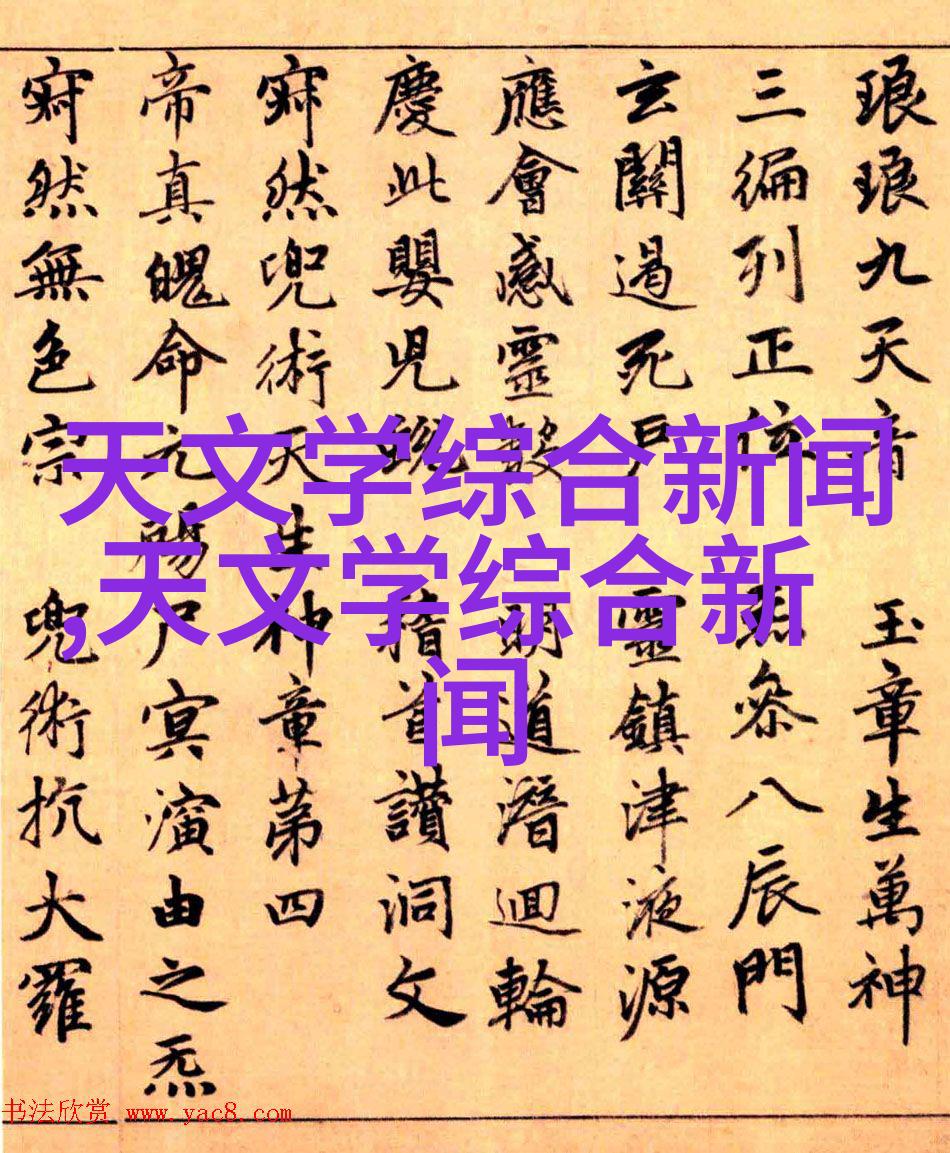 琅琅九天音 玉章生萬神
三徧列正位 參八辰門
玄關遏死戶 靈鎮津液源
應會感靈數 明道潛迴輪
慶此嬰兒 稽首讚洞文
寂然兜術天生神章第四
帝真魄命元尸冥演由之炁
寂然無色宗 兜術抗大羅
天文学综合新闻
,天文学综合新
闻
书法欣赏 www.yac8.com